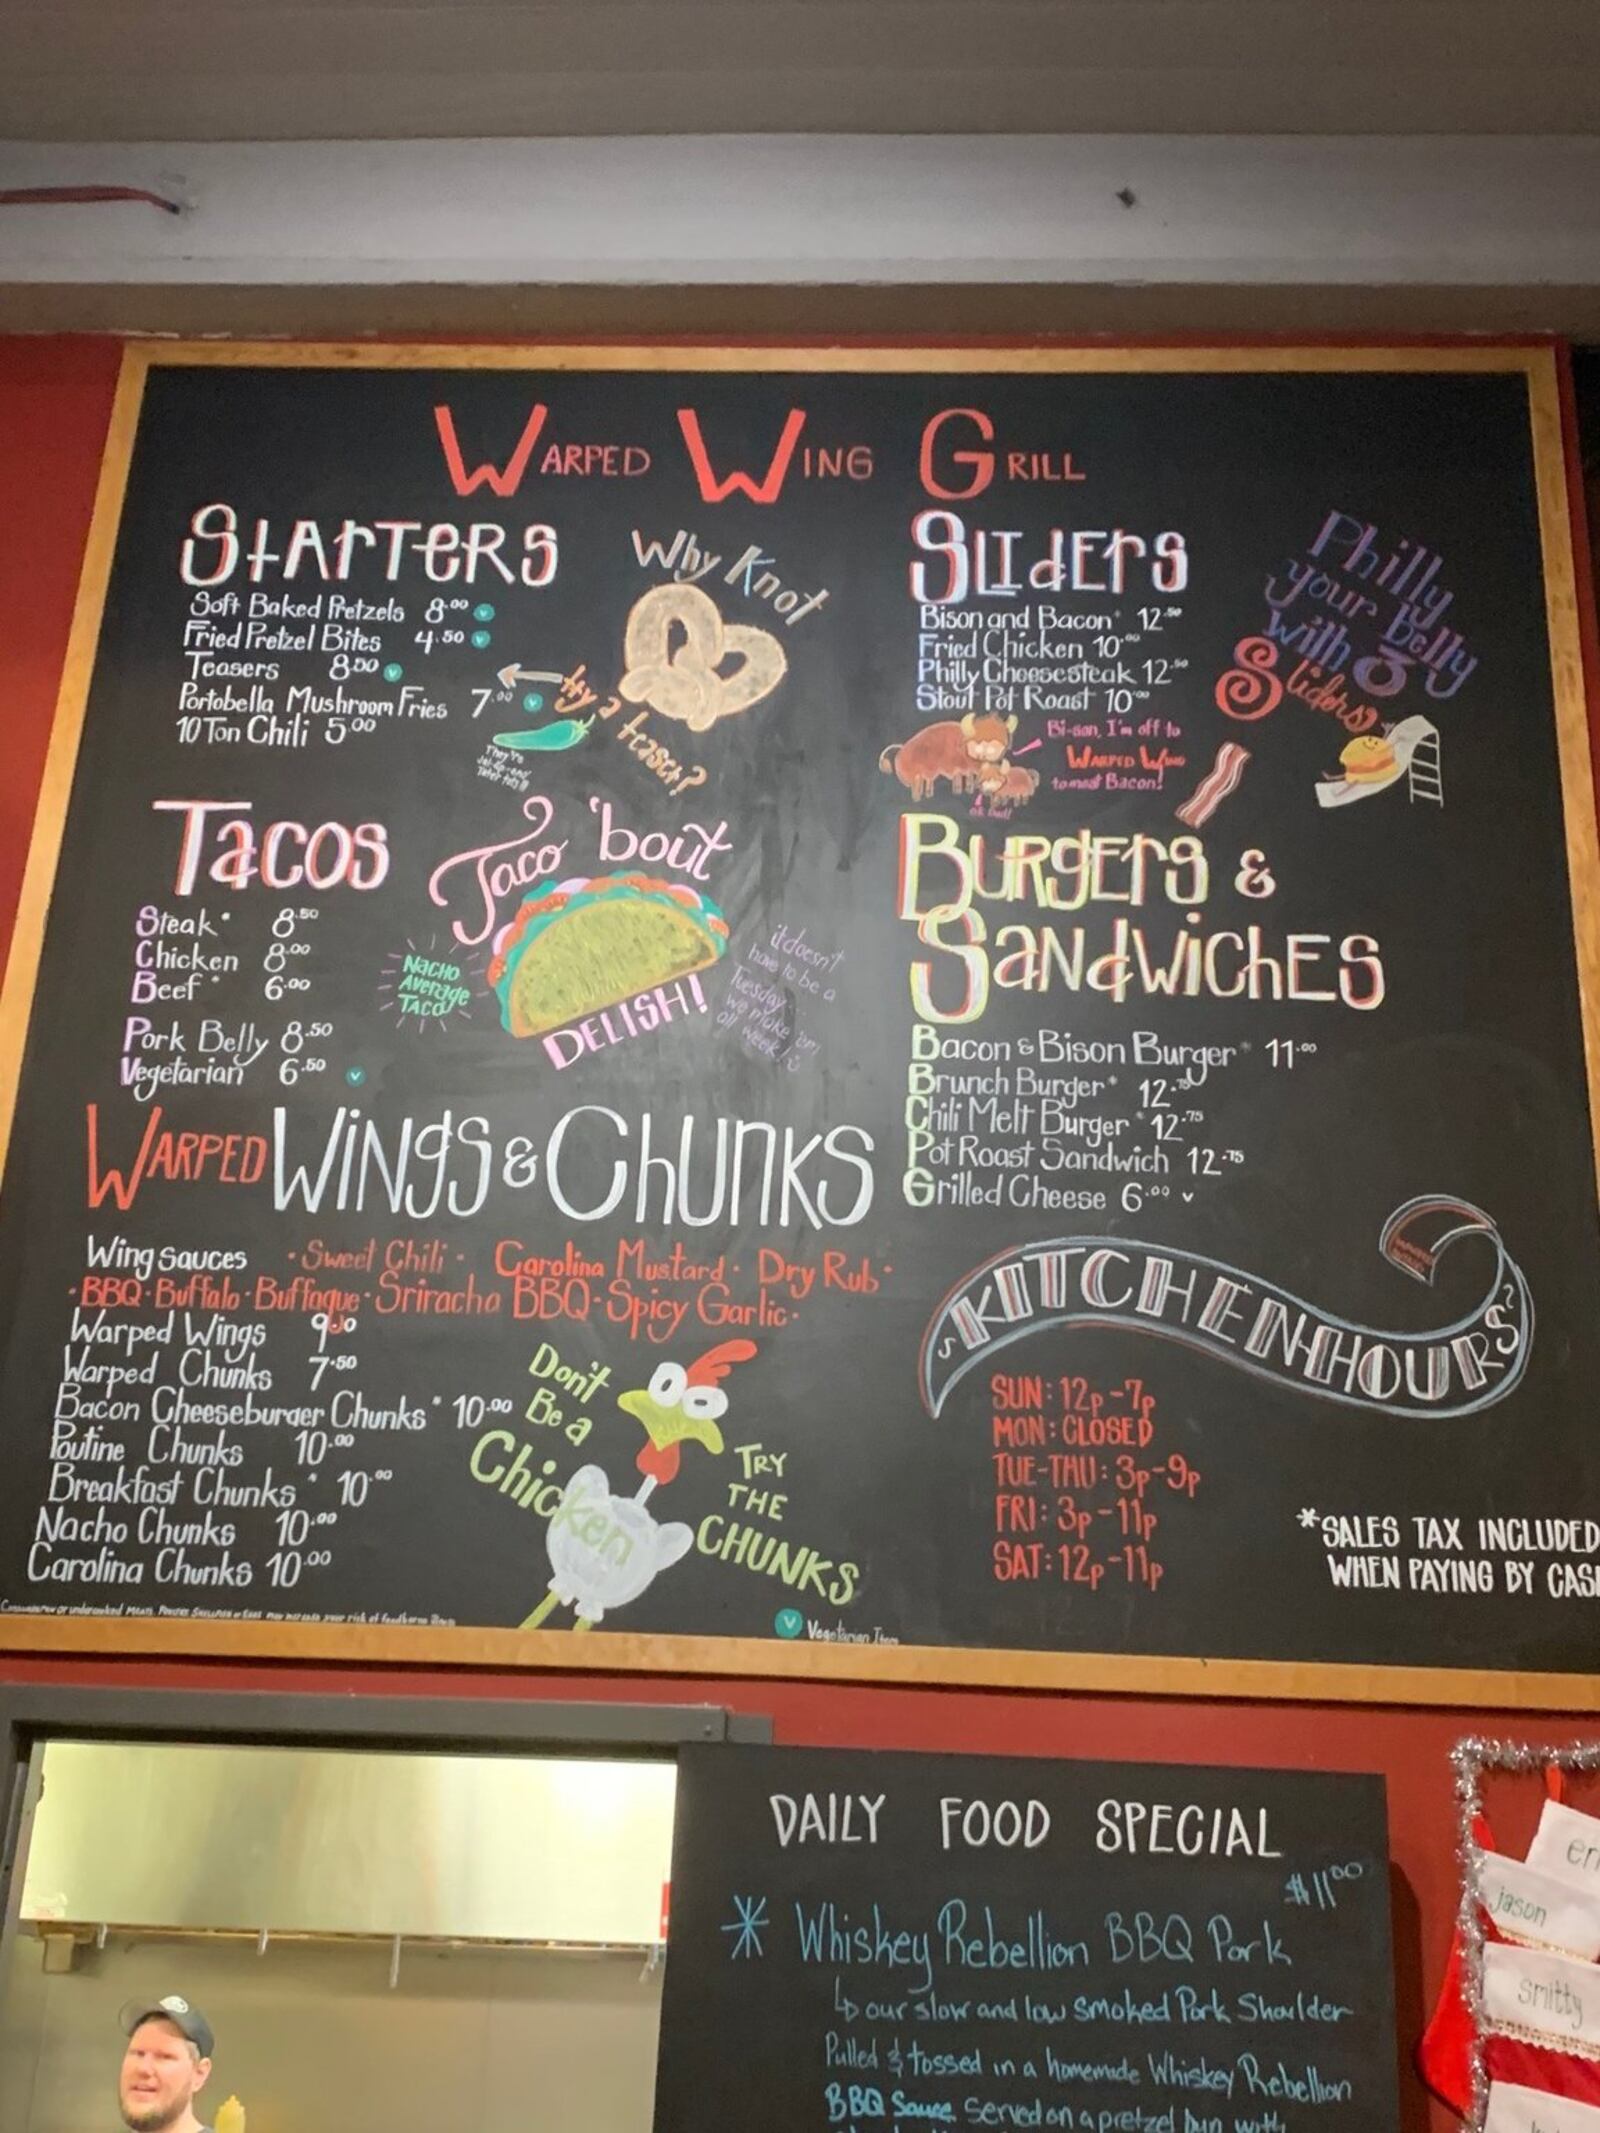 WARPED WING GRILL
StarTeRS
Soft Baked Pretzels 8.00 V
Fried Pretzel Bites 4.50 V
Teasers 8.00 V
Portobella Mushroom Fries 7.00 V
10 Ton Chili 5.00
Why Knot
try a teaser?
TaCOS
Steak* 8.50
Chicken 8.00
Beef* 6.00
Pork Belly 8.50
Vegetarian 6.50 V
Taco 'bout
DELISH!
NACHO
Average
TACO
it doesn't
have to be a
Tuesday...
we make 'em
all week!
WARPED WiNgS & ChUnKS
Wing Sauces • Sweet Chili • Carolina Mustard • Dry Rub •
• BBQ • Buffalo • Buffaque • Sriracha BBQ • Spicy Garlic •
Warped Wings 9.00
Warped Chunks 7.50
Bacon Cheeseburger Chunks* 10.00
Poutine Chunks 10.00
Breakfast Chunks* 10.00
Nacho Chunks 10.00
Carolina Chunks 10.00
Don't
Be a
Chicken
TRY
THE
CHUNKS
Consumption of undercooked MEATS, POULTRY, SHELLFISH or EGGS may increase your risk of foodborne illness
V Vegetarian Item
SLIdErS
Bison and Bacon* 12.50
Fried Chicken 10.00
Philly Cheesesteak 12.50
Stout Pot Roast 10.00
Philly
your belly
with 3
Sliders
Bi-son, I'm off to
WARPED WING
to meet Bacon!
ok Dad!
BURgErS &
SaNdWiChES
Bacon & Bison Burger* 11.00
Brunch Burger* 12.75
Chili Melt Burger* 12.75
Pot Roast Sandwich 12.75
Grilled Cheese 6.00 v
KITCHEN HOURS
SUN: 12p-7p
MON: CLOSED
TUE-THU: 3p-9p
FRI: 3p-11p
SAT: 12p-11p
*SALES TAX INCLUDED
WHEN PAYING BY CAS
DAILY FOOD SPECIAL
$11.00
* Whiskey Rebellion BBQ Pork
our slow and low smoked Pork Shoulder
Pulled & tossed in a homemade Whiskey Rebellion
BBQ Sauce served on a pretzel bun with
jason
smitty